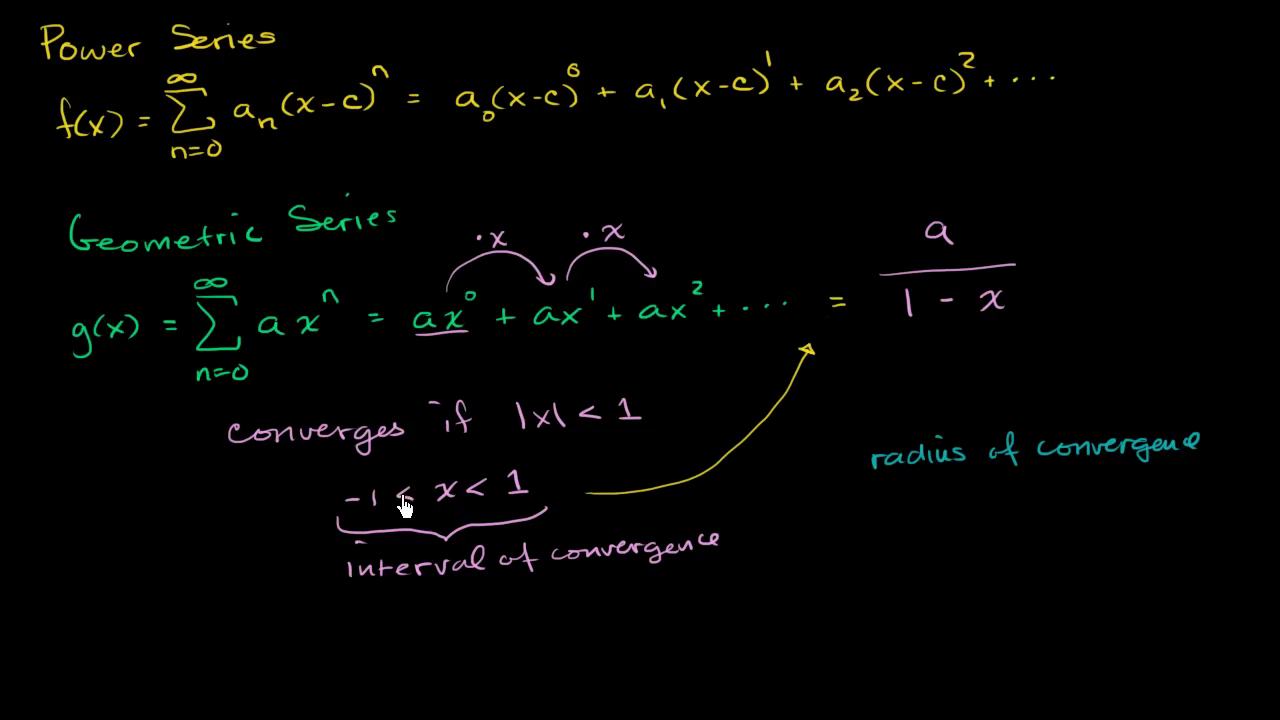 Power Series
f(x) = ∑_{n=0}^{∞} a_n (x-c)^n = a_0(x-c)^0 + a_1(x-c)^1 + a_2(x-c)^2 + ...
Geometric Series
·x ·x
g(x) = ∑_{n=0}^{∞} a x^n = ax^0 + ax^1 + ax^2 + ... = a/(1 - x)
converges if |x| < 1
radius of convergence
-1 < x < 1
interval of convergence